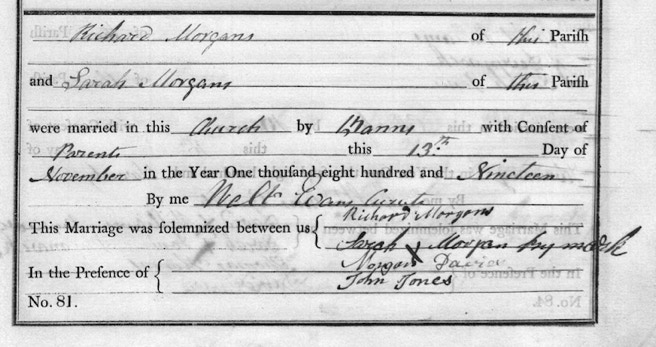 Richard Morgans of this Parish
and Sarah Morgans of this Parish
were married in this Church by Banns with Consent of
Parents this 13th Day of
November in the Year One thousand eight hundred and Nineteen
By me Evans Curate
Richard Morgans
This Marriage was solemnized between us
Sarah X Morgan by mark
Morgan David
In the Presence of
John Jones
No. 81.